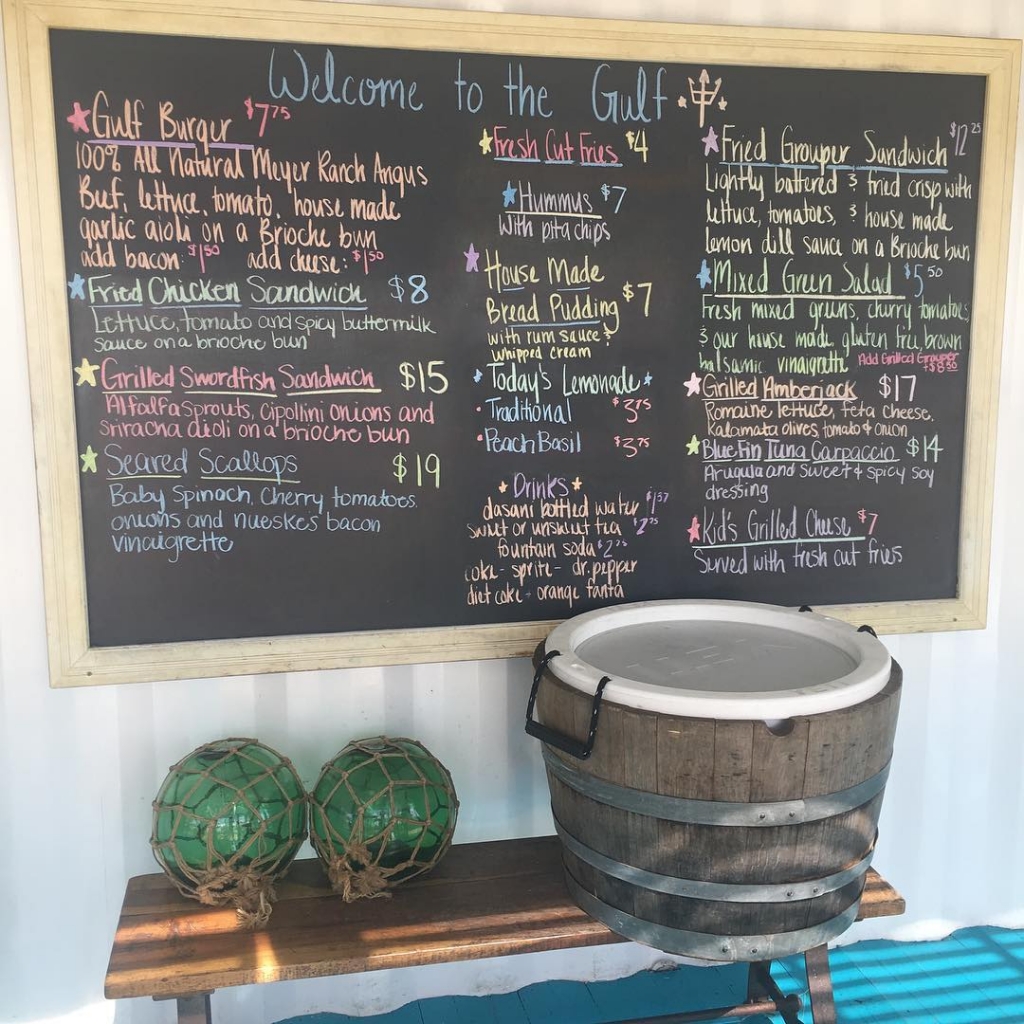 Welcome to the Gulf
Gulf Burger $7.75
100% All Natural Meyer Ranch Angus
Beef, lettuce, tomato, house made
garlic aioli on a Brioche bun
add bacon: $1.50 add cheese: $1.50
Fried Chicken Sandwich $8
Lettuce, tomato and spicy buttermilk
sauce on a brioche bun
Grilled Swordfish Sandwich $15
Alfalfa sprouts, cipollini onions and
sriracha aioli on a brioche bun
Seared Scallops $19
Baby Spinach, Cherry tomatoes,
onions and nueskes bacon
vinaigrette
Fresh Cut Fries $4
Hummus $7
with pita chips
House Made
Bread Pudding $7
with rum sauce &
whipped cream
Today's Lemonade
Traditional $3.75
Peach Basil $3.75
Drinks
dasani bottled water $1.57
sweet or unsweet tea $2.75
fountain soda $2.75
coke - sprite - dr. pepper
diet coke - orange fanta
Fried Grouper Sandwich $12.25
Lightly battered & fried crisp with
lettuce, tomatoes, & house made
lemon dill sauce on a Brioche bun
Mixed Green Salad $5.50
Fresh mixed greens, cherry tomatoes,
& our house made, gluten free, brown
balsamic vinaigrette Add Grilled Grouper
+$8.50
Grilled Amberjack $17
Romaine lettuce, feta cheese,
Kalamata olives, tomato & onion
Blue Fin Tuna Carpaccio $14
Arugula and sweet & spicy soy
dressing
Kid's Grilled Cheese $7
Served with fresh cut fries